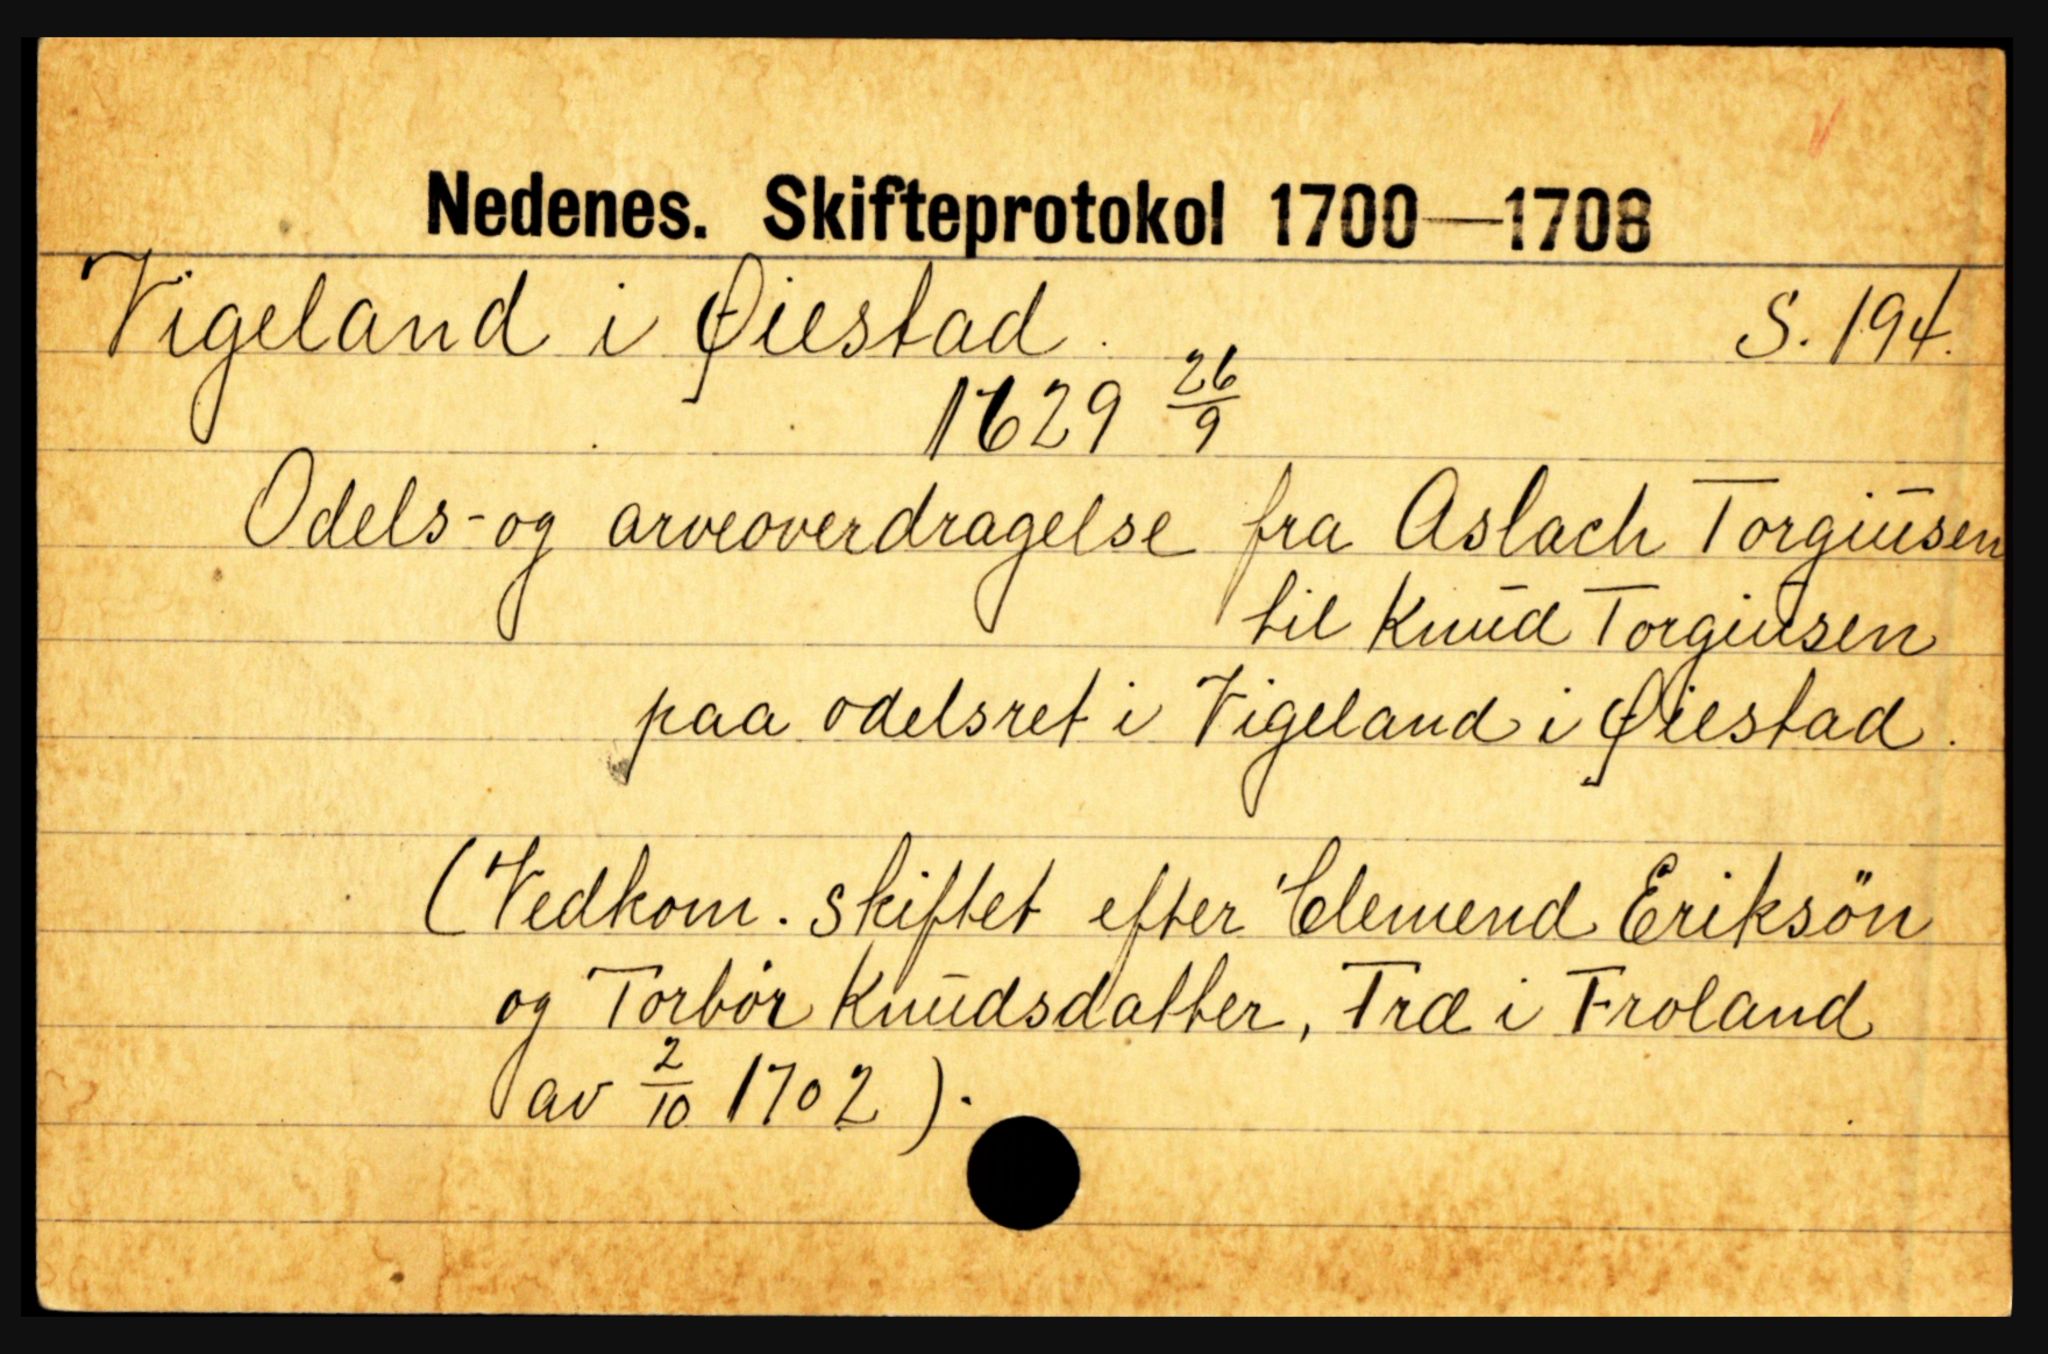 Nedenes. Skifteprotokol 1700—1708
Vigeland i Øiestad. S. 194.
1629 26/9
Odels- og arveoverdragelse fra Aslach Torgiusen
til Knud Torgiusen
paa odelsret i Vigeland i Øiestad.
(Vedkom. skiftet efter Clemend Eriksön
og Torbør Knudsdatter, Træ i Froland
av 2/10 1702).